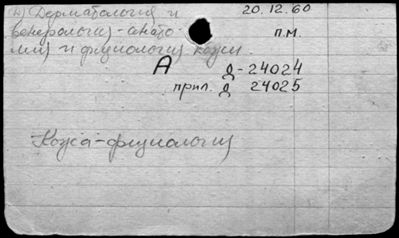 h) Дерматология и 20.12.60
венерология - анато- п.м.
мия и физиология кожи
А Д-24024
прил. Д 24025
Кожа-физиология